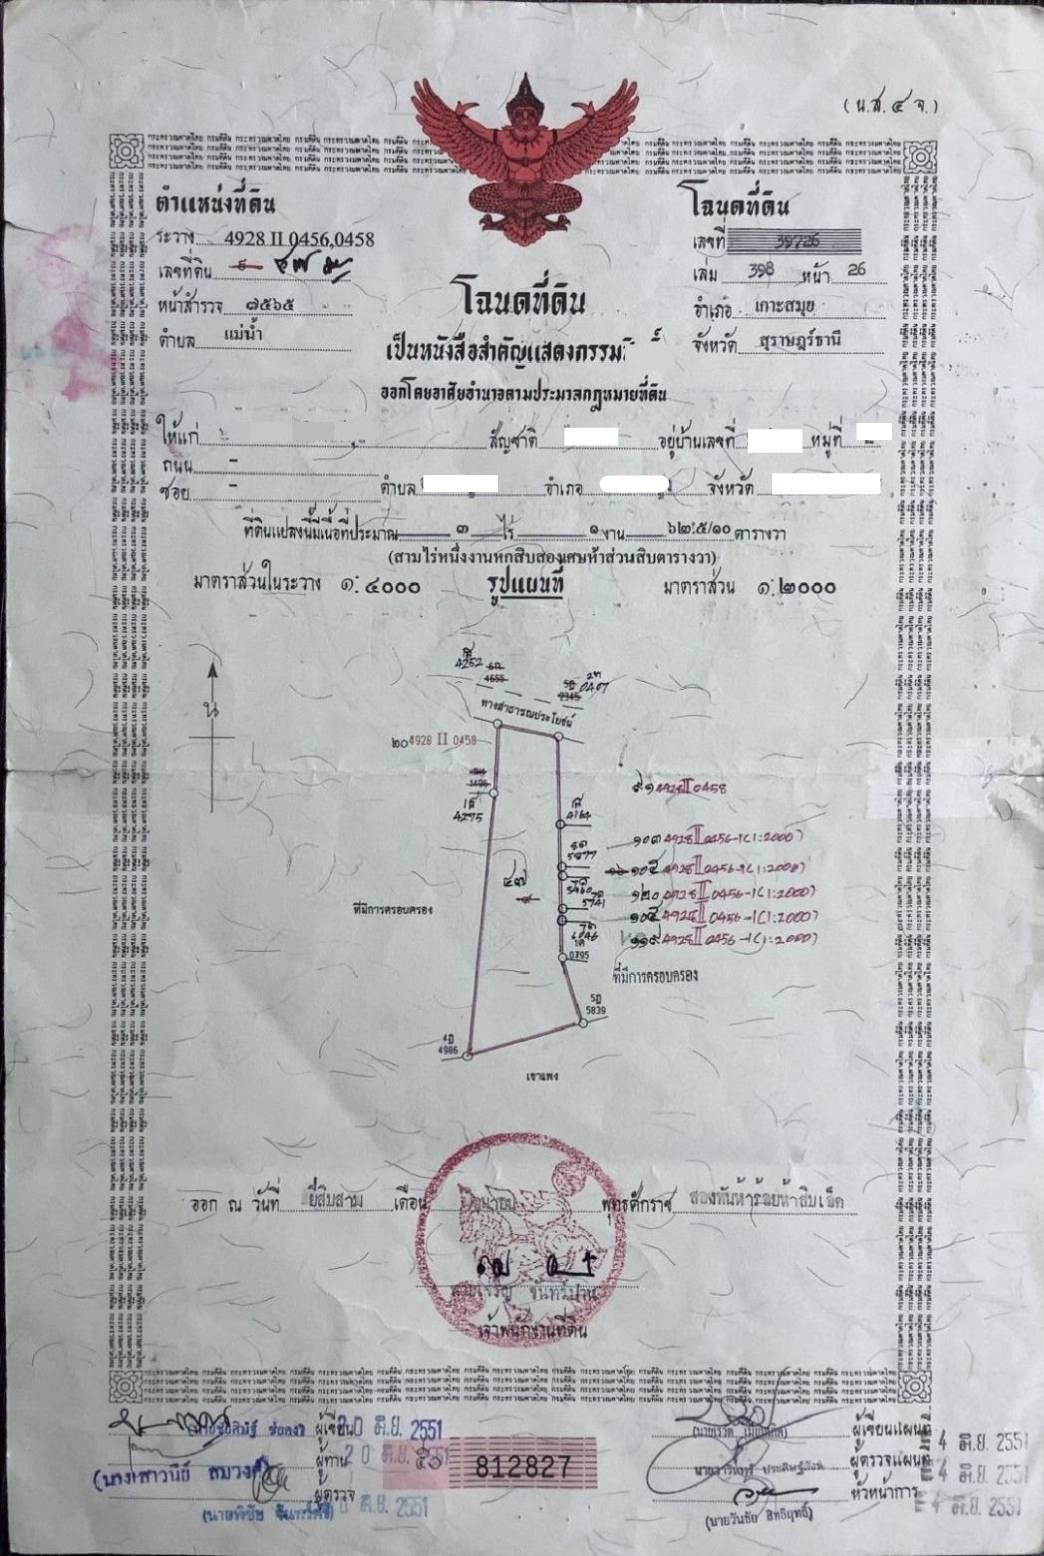 (น.ส.๔ จ.)
ตำแหน่งที่ดิน
ระวาง 4928 II 0456,0458
เลขที่ดิน ๔๗
หน้าสำรวจ ๗๕๖๕
ตำบล แม่น้ำ
โฉนดที่ดิน
เลขที่ 39726
เล่ม 398 หน้า 26
อำเภอ เกาะสมุย
จังหวัด สุราษฎร์ธานี
โฉนดที่ดิน
เป็นหนังสือสำคัญแสดงกรรม
ออกโดยอาศัยอำนาจตามประมวลกฎหมายที่ดิน
ให้แก่ สัญชาติ อยู่บ้านเลขที่ หมู่ที่
ถนน -
ซอย - ตำบล อำเภอ จังหวัด
ที่ดินแปลงนี้มีเนื้อที่ประมาณ ๓ ไร่ ๑ งาน ๖๒.๕/๑๐ ตารางวา
(สามไร่หนึ่งงานหกสิบสองเศษห้าส่วนสิบตารางวา)
มาตราส่วนในระวาง ๑:๔๐๐๐ รูปแผนที่ มาตราส่วน ๑:๒๐๐๐
4252 4655 2345 0407
ทางสาธารณประโยชน์
น
๒๐ 4928 II 0458
๙๑ 4928 II 0458
4295
4164
5877
๑๐๓ 4928 II 0456-1(1:2000)
๑๐๕ 4928 II 0456-1(1:2000)
5741
๔๗
๑๒๐ 4928 II 0456-1(1:2000)
๑๐๔ 4928 II 0456-1(1:2000)
ที่มีการครอบครอง
๑๑๙ 4928 II 0456-1(1:2000)
0395
ที่มีการครอบครอง
5839
4986
เขาแพง
ออก ณ วันที่ ยี่สิบสาม เดือน พุทธศักราช สองพันห้าร้อยห้าสิบเอ็ด
เจ้าพนักงานที่ดิน
ผู้เขียน 20 มิ.ย. 2551
ผู้ทาน 20 มิ.ย. 2551
ผู้ตรวจ มิ.ย. 2551
812827
ผู้เขียนแผนที่ 4 มิ.ย. 2551
ผู้ตรวจแผนที่ 4 มิ.ย. 2551
หัวหน้าการ 4 มิ.ย. 2551
(นายวันชัย สิทธิฤทธิ์)